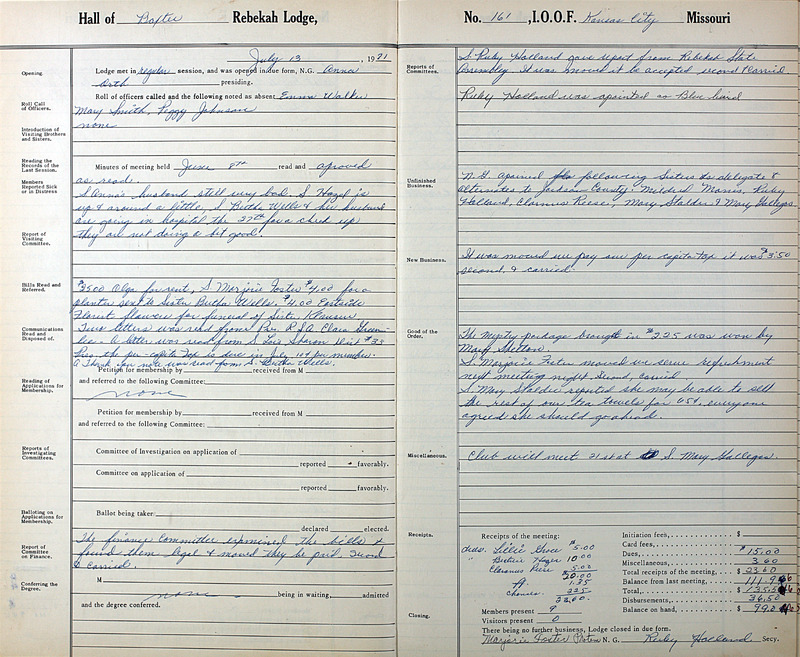 Hall of Baxter Rebekah Lodge,
July 13, 19
Opening
Lodge met in regular session, and was opened in due form, N.G. Anna
Orth presiding.
Roll Call of Officers.
Roll of officers called and the following noted as absent Emma Walker
Mary Smith, Peggy Johnson
Introduction of Visiting Brothers and Sisters.
none
Reading the Records of the Last Session.
Minutes of meeting held June 8th read and aproved
as read.
Members Reported Sick or in Distress
S Anna's husband still very bad. S Hazel is
up & around a little, S Bertha Wells & her husband
are going in hospital the 27th for a check up
they are not doing a bit good.
Report of Visiting Committee.
Bills Read and Referred.
$35.00 Olga for rent, S Marjorie Foster $4.00 for a
planter sent to Sister Bertha Wells. $4.00 Eastside
Florist flowers for funeral of Sister
Communications Read and Disposed of.
Two letters was read from Pres. R.S.A Clara
A letter was read from S Lois Sharon Dist #33
Pres. the per-capita tax is due in July per member.
A Thank you note was read from S. Bertha Wells.
Reading of Applications for Membership.
Petition for membership by received from M
and referred to the following Committee:
none
Petition for membership by received from M
and referred to the following Committee:
Reports of Investigating Committees.
Committee of Investigation on application of
reported favorably.
Committee on application of
reported favorably.
Balloting on Applications for Membership.
Ballot being taken:
declared elected.
Report of Committee on Finance.
The finance committee examined the bills &
found them legal & moved they be paid. Second
& carried.
Conferring the Degree.
M
none being in waiting, admitted
and the degree conferred.
No. 161, I.O.O.F. Kansas City Missouri
Reports of Committees.
S. Ruby Holland gave report from Rebekah State
Assembly. It was moved it be accepted second & carried.
Ruby Holland was apointed as
Unfinished Business.
N.G. apointed following Sisters to delegate &
alternates to Jackson County: Mildred Mann, Ruby
Holland, Clarmus Reese, Mary Stalder & Mary Gallegos.
New Business.
It was moved we pay our per capita tax it was $3.50
second & carried.
Good of the Order.
The mystry package brought in $2.25 was won by
Mary Shelton.
S. Marjorie Foster moved we serve refreshment
next meeting night. Second, carried.
S. Mary Stalder reported she may be able to sell
the rest of our tea towels for 65¢, everyone
agreed she should go ahead.
Miscellaneous.
Club will meet 21st at S. Mary Gallegos.
Receipts.
Receipts of the meeting:
dues. Lillie $5.00
" 10.00
Clarmus 5.00
20.00
1.35
Chances 2.25
23.60
Initiation fees, $
Card fees,
Dues, $15.00
Miscellaneous, 3.60
Total receipts of the meeting, $23.60
Balance from last meeting,
Total, $
Disbursements, 36.50
Balance on hand, $
Members present 9
Visitors present 0
Closing.
There being no further business, Lodge closed in due form.
Marjorie Foster Protem N.G. Ruby Holland Secy.